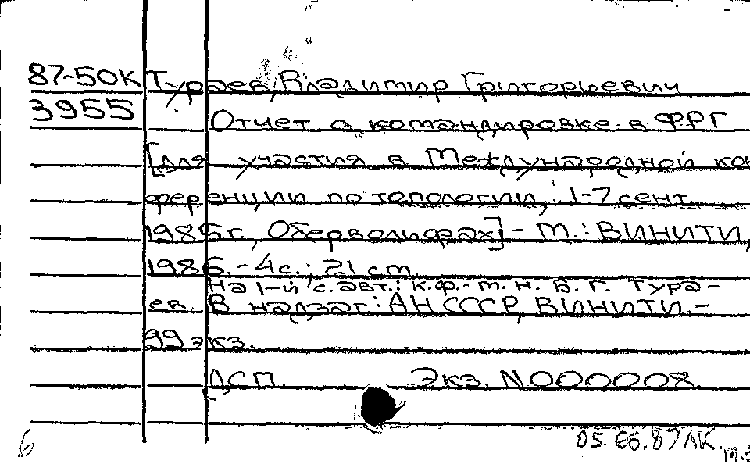 87-50К Тураев, Владимир Григорьевич
3955
Отчет о командировке в ФРГ
[для участия в Международной кон
ференции по топологии, 1-7 сент.
1985 г., Обервольфах] - М.: ВИНИТИ,
1986. - 4 с.; 21 см.
На 1-й с. авт.: к.ф.-м. н. В. Г. Тура-
ев. В надзаг.: АН СССР, ВИНИТИ. -
99 экз.
ДСП Экз. N000008
6 05.06.87 ЛК.